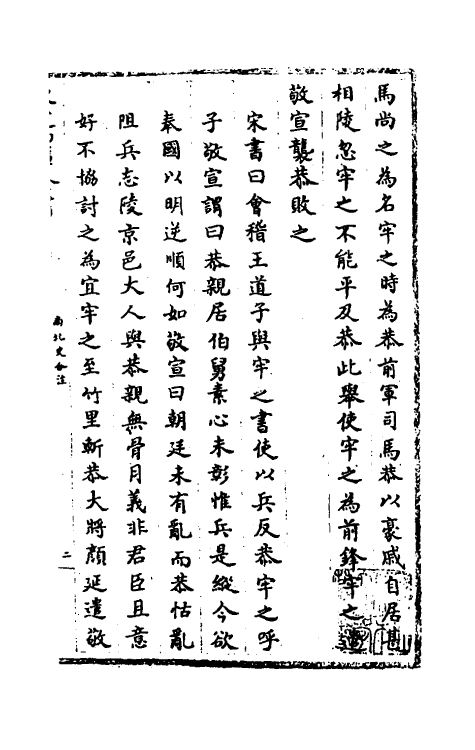 馬尚之為名牢之時為恭前軍司馬恭以豪戚自居甚
相陵忽牢之不能平及恭此舉使牢之為前鋒牢之遣
敬宣襲恭敗之
宋書曰會稽王道子與牢之書使以兵反恭牢之呼
子敬宣謂曰恭親居伯舅素心未彰惟兵是縱今欲
奉國以明逆順何如敬宣曰朝廷未有亂而恭怙亂
阻兵志陵京邑大人與恭親無骨月義非君臣且意
好不協討之為宜牢之至竹里斬恭大將顏延遣敬
南北史合注
二